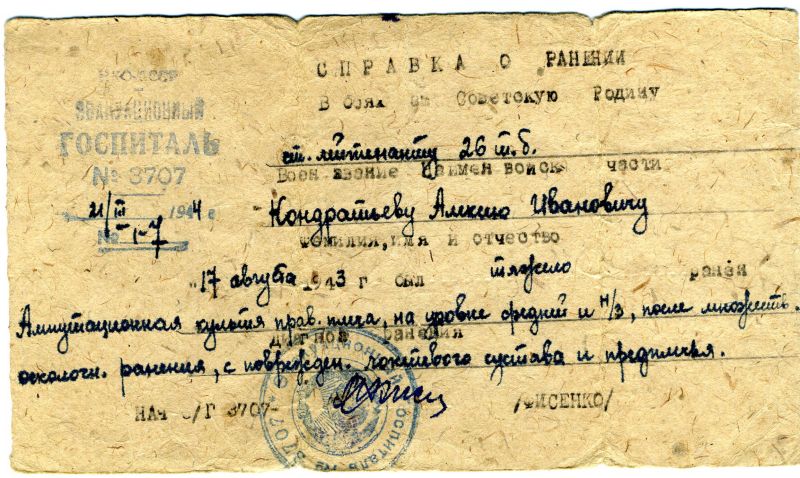 СПРАВКА О РАНЕНИИ
В боях за Советскую Родину
НКО-СССР
ЭВАКУАЦИОННЫЙ
ГОСПИТАЛЬ
№ 3707
21/III 1944 г
№ 1-7
ст. лейтенанту 26 т.б.
Воен звание наимен войск части
Кондратьеву Алексею Ивановичу
фамилия, имя и отчество
"17 августа 1943 г был тяжело ранен
Ампутационная культя прав. плеча, на уровне средней и н/з, после множеств.
диагноз ранения
осколочн. ранения, с поврежден. локтевого сустава и предплечья.
НАЧ Э/Г 3707- /ФИСЕНКО/
госпиталь № 3707